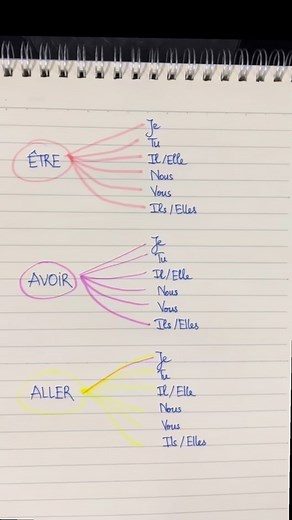 ÊTRE
Je
Tu
Il/Elle
Nous
Vous
Ils/Elles
AVOIR
Je
Tu
Il/Elle
Nous
Vous
Ils/Elles
ALLER
Je
Tu
Il/Elle
Nous
Vous
Ils/Elles